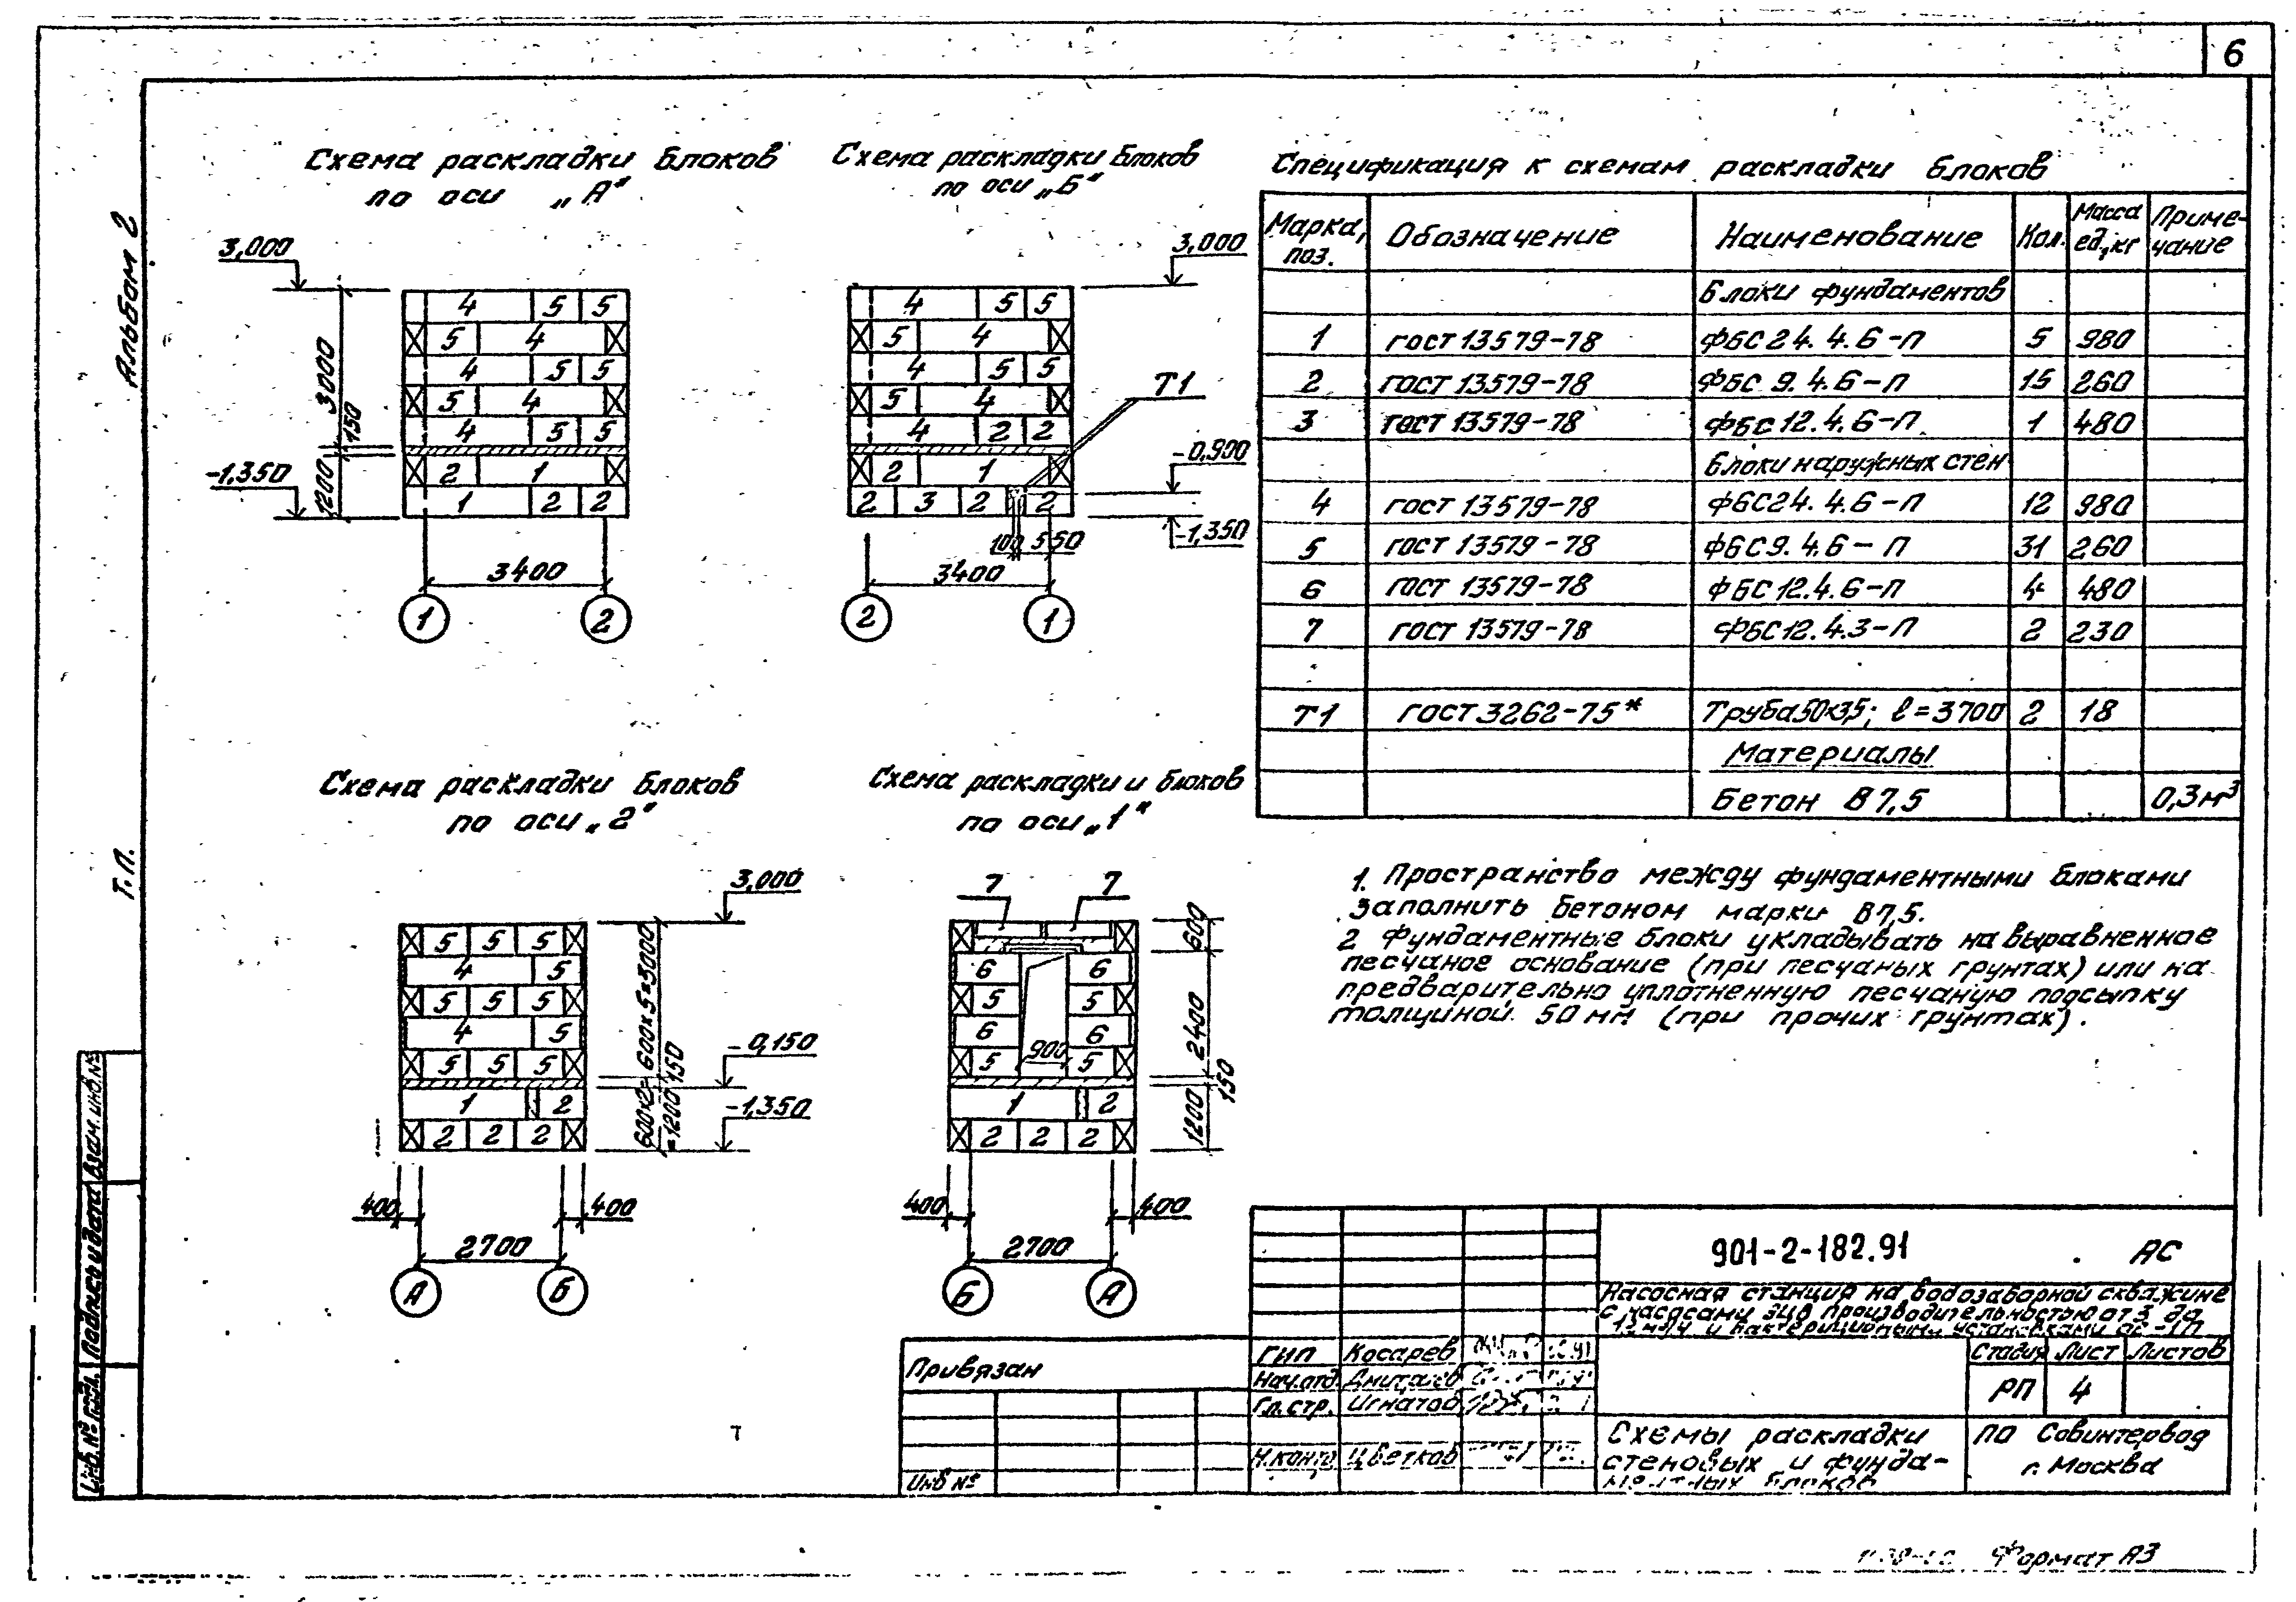 6
Альбом 2
Т.П.
Схема раскладки блоков
по оси „А"
3,000
4 5 5
5 4
4 5 5
5 4
4 5 5
2 1
1 2 2
3000
150
1200
-1,350
3400
1 2
Схема раскладки блоков
по оси „Б"
3,000
4 5 5
5 4
4 5 5
5 4
4 2 2
2 1
2 3 2 2
Т1
-0,900
-1,350
100 550
3400
2 1
Спецификация к схемам раскладки блоков
Марка, поз. Обозначение Наименование Кол. Масса ед, кг Приме-чание
Блоки фундаментов
1 гост 13579-78 ФБС24.4.6-П 5 980
2 гост 13579-78 ФБС 9.4.6-П 15 260
3 гост 13579-78 ФБС12.4.6-П 1 480
Блоки наружных стен
4 гост 13579-78 ФБС24.4.6-П 12 980
5 гост 13579-78 ФБС9.4.6-П 31 260
6 гост 13579-78 ФБС12.4.6-П 4 480
7 гост 13579-78 ФБС12.4.3-П 2 230
Т1 гост 3262-75* Труба50×3,5; ℓ=3700 2 18
Материалы
Бетон В 7,5 0,3м³
Схема раскладки блоков
по оси „2"
3,000
5 5 5
4 5
5 5 5
4 5
5 5 5
1 2
2 2 2
600×5=3000
150
600×2=
=1200
-0,150
-1,350
400 400
2700
А Б
Схема раскладки и блоков
по оси „1"
7 7
6 6
5 5
6 6
5 900 5
1 2
2 2 2
600
2400
150
1200
400 400
2700
Б А
1. Пространство между фундаментными блоками
заполнить бетоном марки В7,5.
2 Фундаментные блоки укладывать на выравненное
песчаное основание (при песчаных грунтах) или на
предварительно уплотненную песчаную подсыпку
толщиной 50 мм (при прочих грунтах).
901-2-182.91 АС
Насосная станция на водозаборной скважине
с насосами ЭЦВ производительностью от 3 до
и бактерицидными установками
Привязан
Инв №
ГИП Косарев
Нач.отд.
Гл.стр. Игнатов
Н.контр Цветков
Стадия Лист Листов
РП 4
Схемы раскладки
стеновых и фунда-
ментных блоков
ПО Совинтервод
г. Москва
Взам.инв.№
Подпись и дата
Инв.№ подл.
Формат А3